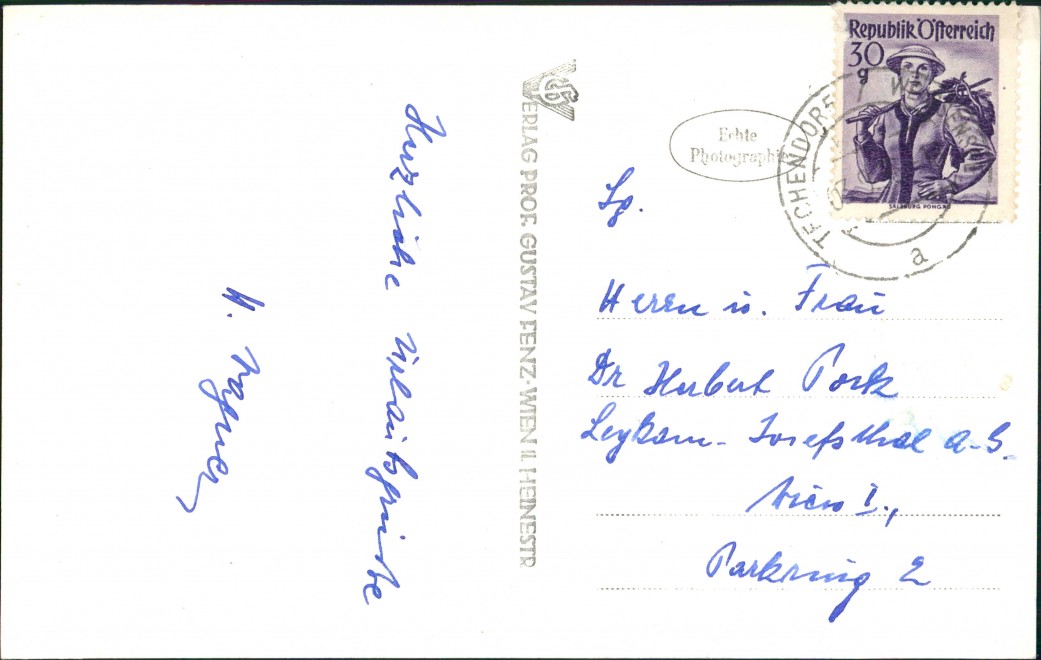 Herzliche Urlaubsgrüsse
VERLAG PROF. GUSTAV FENZ·WIEN II. HEINESTR
Echte
Photographie
Republik Österreich
30
g
SALZBURG PONGAU
TECHENDORF
a
Sg.
Herrn u. Frau
Dr Herbert Pork
Leykam-Josefsthal A-G.
Wien I.,
Parkring 2